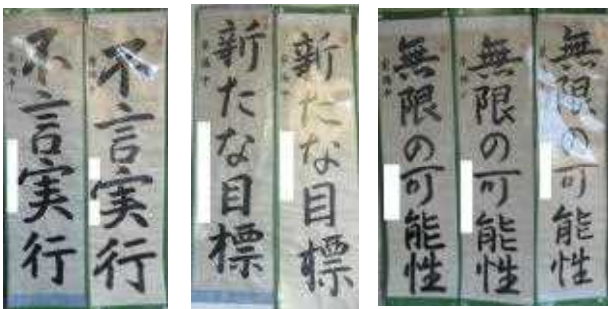 不言実行
不言実行
新たな目標
新たな目標
無限の可能性
無限の可能性
無限の可能性